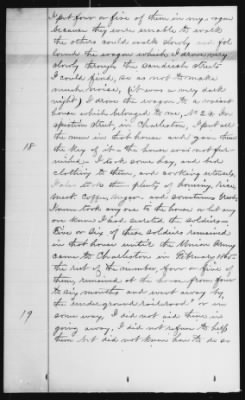 I put four or five of them in my wagon
because they were unable to walk
the others could walk slowly and fol
lowed the wagon which I drove very
slowly through the sandiest streets
I could find, so as not to make
much noise, (it was a very dark
night) I drove the wagon to a vacant
house which belonged to me, No 22
street, in Charleston, I put all
the men in that house and gave them
the key of it - the house was not fur
18
nished - I took some hay, and bed
clothing to them, and cooking utensils,
I also took them plenty of hominy, rice,
meat, Coffee, sugar, and sometimes bread,
never took any one to the house or let any
one know I had secreted the soldiers -
Five or Six of these soldiers remained
in that house until the Union Army
came to Charleston in February 1865
the rest of the number, four or five of
them, remained at the house from four
to six months and went away by
the "underground railroad" or in
19
some way, I did not aid them in
going away, I did not refuse to help
them but did not know how to do so